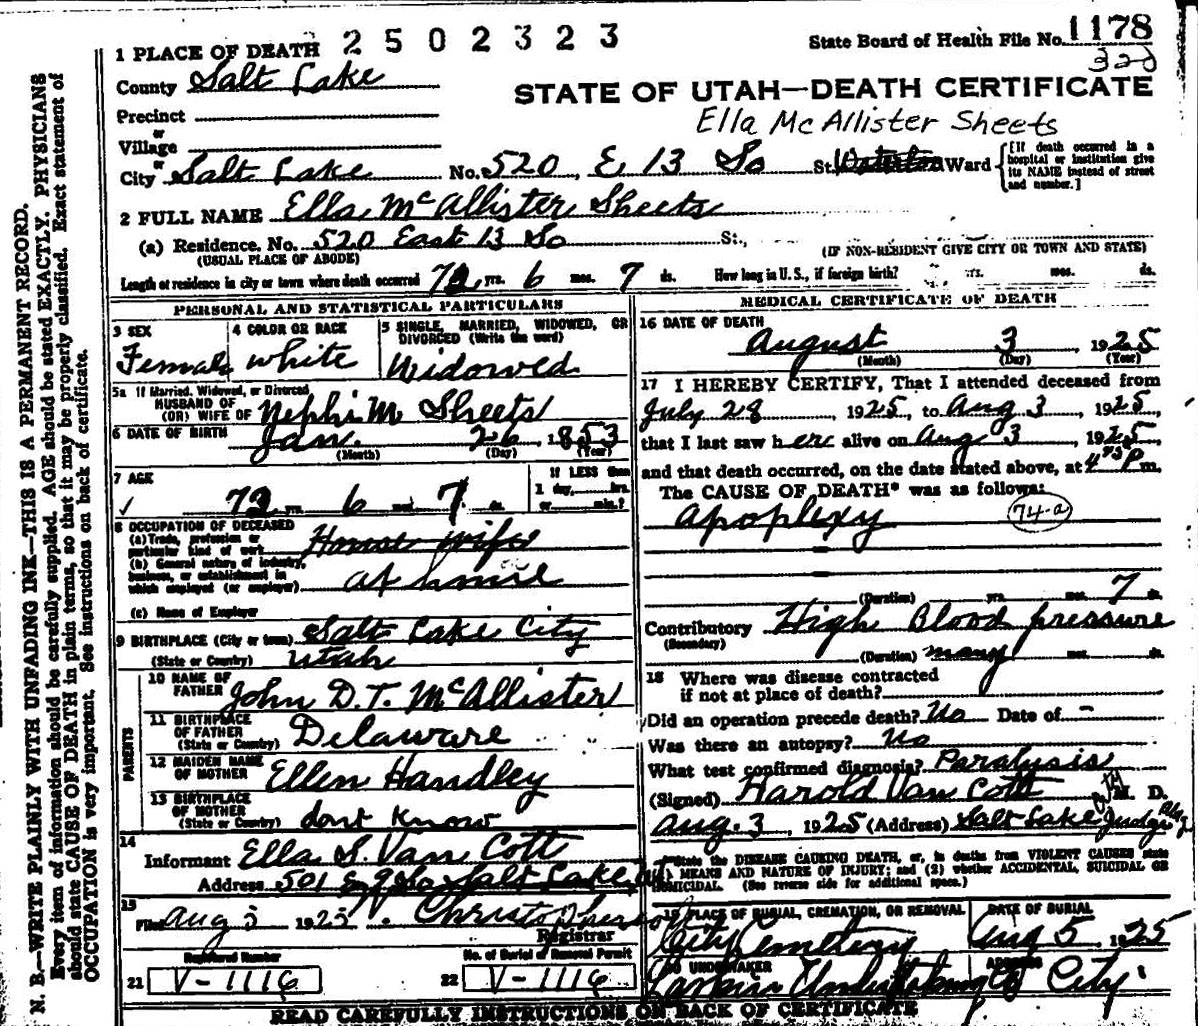 1 PLACE OF DEATH 2502323
State Board of Health File No. 1178
320
County Salt Lake
STATE OF UTAH—DEATH CERTIFICATE
Precinct
Ella McAllister Sheets
or
Village
or
City Salt Lake No. 520 E 13 So St. Ward
[If death occurred in a hospital or institution give its NAME instead of street and number.]
2 FULL NAME Ella McAllister Sheets
(a) Residence. No. 520 East 13 So St.,
(USUAL PLACE OF ABODE) (IF NON-RESIDENT GIVE CITY OR TOWN AND STATE)
Length of residence in city or town where death occurred 72 yrs. 6 mos. 7 ds. How long in U.S., if foreign birth? yrs. mos. ds.
PERSONAL AND STATISTICAL PARTICULARS
3 SEX
Female
4 COLOR OR RACE
white
5 SINGLE, MARRIED, WIDOWED, OR DIVORCED (Write the word)
Widowed
5a If Married, Widowed, or Divorced
HUSBAND OF
(OR) WIFE OF Nephi M Sheets
6 DATE OF BIRTH Jan. 26, 1853
(Month) (Day) (Year)
7 AGE
If LESS than
1 day, hrs.
or min.?
72 yrs. 6 mos. 7 ds.
8 OCCUPATION OF DECEASED
(a) Trade, profession or
particular kind of work House wife
(b) General nature of industry,
business, or establishment in
which employed (or employer) at home
(c) Name of Employer
9 BIRTHPLACE (City or town) Salt Lake City
(State or Country) Utah
PARENTS
10 NAME OF
FATHER John D.T. McAllister
11 BIRTHPLACE
OF FATHER
(State or Country) Delaware
12 MAIDEN NAME
OF MOTHER Ellen Handley
13 BIRTHPLACE
OF MOTHER
(State or Country) dont know
14
Informant Ella S. Van Cott
Address 501 E 9 So Salt Lake
15
Filed Aug 5 1925
Registrar
Registered Number
21 V-1116
No. of Burial or Removal Permit
22 V-1116
MEDICAL CERTIFICATE OF DEATH
16 DATE OF DEATH
August 3, 1925
(Month) (Day) (Year)
17 I HEREBY CERTIFY, That I attended deceased from
July 28, 1925, to Aug 3, 1925
that I last saw her alive on Aug 3, 1925
and that death occurred, on the date stated above, at P m.
The CAUSE OF DEATH* was as follows:
Apoplexy 74-a
(Duration) yrs. mos. 7 ds.
Contributory High Blood pressure
(Secondary)
(Duration) many mos. ds.
18 Where was disease contracted
if not at place of death?
Did an operation precede death? No Date of -
Was there an autopsy? No
What test confirmed diagnosis? Paralysis
(Signed) Harold Van Cott M. D.
Aug. 3, 1925 (Address) Salt Lake Judge Bldg
*State the DISEASE CAUSING DEATH, or, in deaths from VIOLENT CAUSES state
(1) MEANS AND NATURE OF INJURY; and (2) whether ACCIDENTAL, SUICIDAL OR
HOMICIDAL. (See reverse side for additional space.)
19 PLACE OF BURIAL, CREMATION, OR REMOVAL
City Cemetery
DATE OF BURIAL
Aug 5, 1925
20 UNDERTAKER
Undertaking Co
ADDRESS
City
READ CAREFULLY INSTRUCTIONS ON BACK OF CERTIFICATE
N. B.—WRITE PLAINLY WITH UNFADING INK—THIS IS A PERMANENT RECORD.
Every item of information should be carefully supplied. AGE should be stated EXACTLY. PHYSICIANS
should state CAUSE OF DEATH in plain terms, so that it may be properly classified. Exact statement of
OCCUPATION is very important. See instructions on back of certificate.